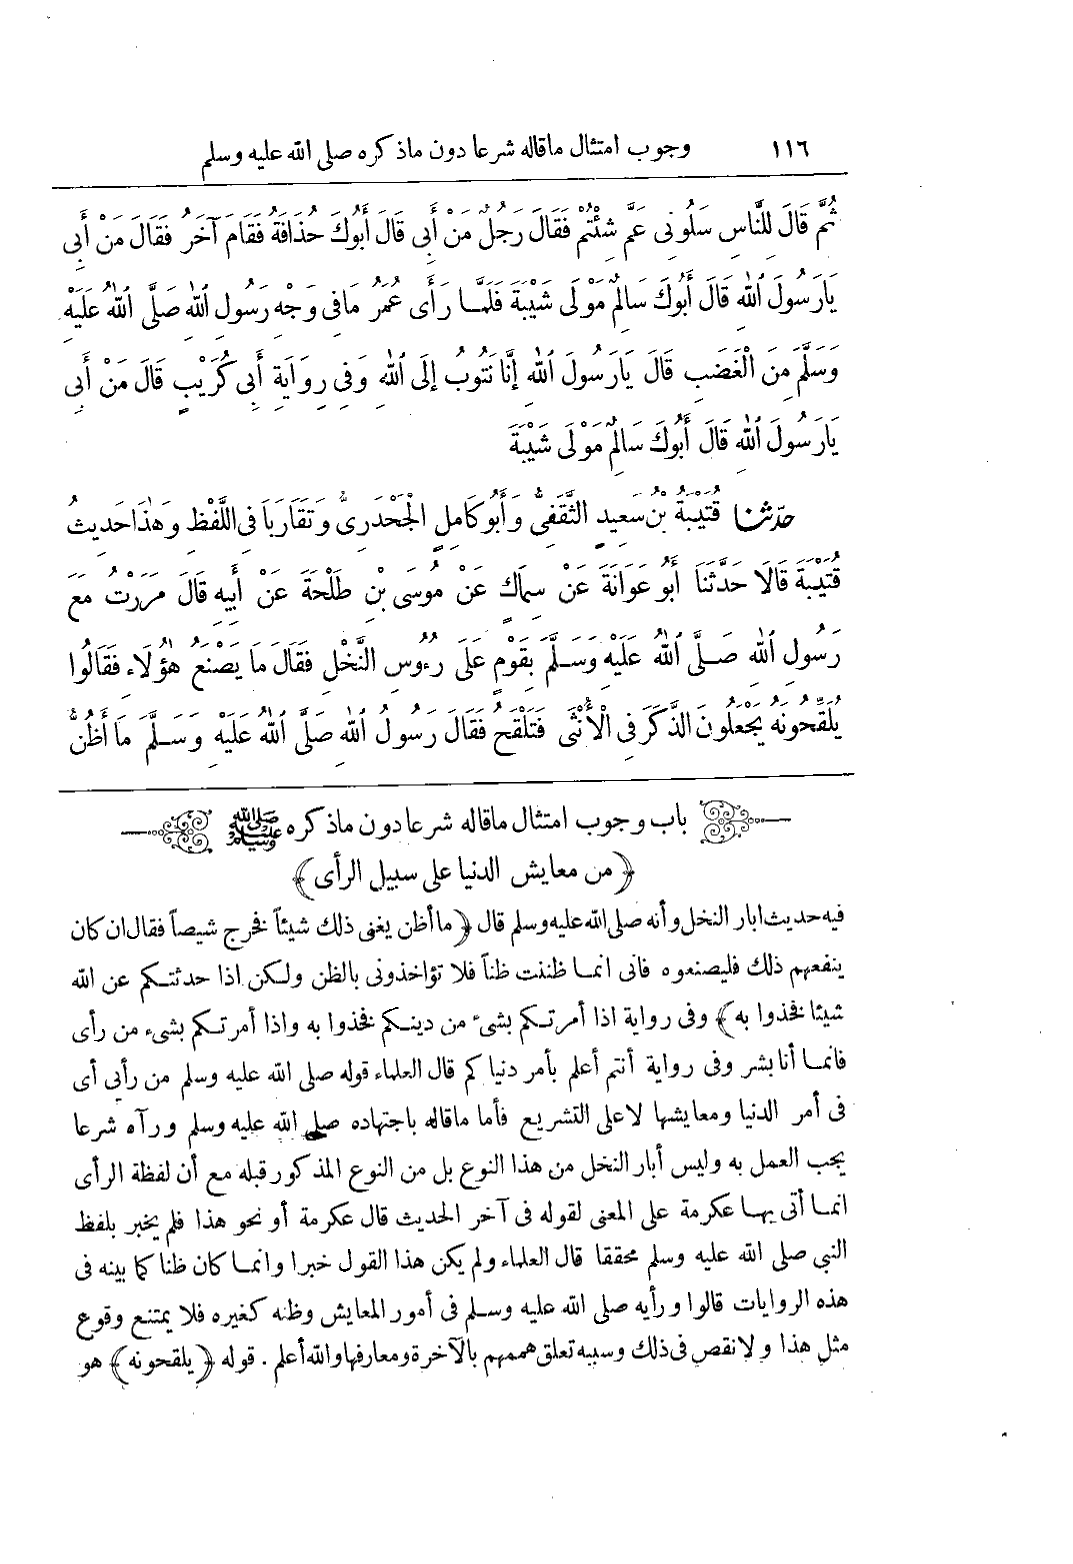 ١١٦ وجوب امتثال ماقاله شرعا دون ماذكره صلى الله عليه وسلم
ثُمَّ قَالَ لِلنَّاسِ سَلُونِى عَمَّ شِئْتُمْ فَقَالَ رَجُلٌ مَنْ أَبِى قَالَ أَبُوكَ حُذَافَةُ فَقَامَ آخَرُ فَقَالَ مَنْ أَبِى
يَارَسُولَ اللهِ قَالَ أَبُوكَ سَالِمٌ مَوْلَى شَيْبَةَ فَلَمَّا رَأَى عُمَرُ مَافِى وَجْهِ رَسُولِ اللهِ صَلَّى اللهُ عَلَيْهِ
وَسَلَّمَ مِنَ الْغَضَبِ قَالَ يَارَسُولَ اللهِ إِنَّا نَتُوبُ إِلَى اللهِ وَفِى رِوَايَةِ أَبِى كُرَيْبٍ قَالَ مَنْ أَبِى
يَارَسُولَ اللهِ قَالَ أَبُوكَ سَالِمٌ مَوْلَى شَيْبَةَ
حَدَّثَنَا قُتَيْبَةُ بْنُ سَعِيدٍ الثَّقَفِىُّ وَأَبُوكَامِلٍ الْجَحْدَرِىُّ وَتَقَارَبَا فِى اللَّفْظِ وَهٰذَاحَدِيثُ
قُتَيْبَةَ قَالَا حَدَّثَنَا أَبُوعَوَانَةَ عَنْ سِمَاكٍ عَنْ مُوسَى بْنِ طَلْحَةَ عَنْ أَبِيهِ قَالَ مَرَرْتُ مَعَ
رَسُولِ اللهِ صَلَّى اللهُ عَلَيْهِ وَسَلَّمَ بِقَوْمٍ عَلَى رُءُوسِ النَّخْلِ فَقَالَ مَا يَصْنَعُ هٰؤُلَاءِ فَقَالُوا
يُلَقِّحُونَهُ يَجْعَلُونَ الذَّكَرَ فِى الْأُنْثَى فَتَلْقَحُ فَقَالَ رَسُولُ اللهِ صَلَّى اللهُ عَلَيْهِ وَسَلَّمَ مَا أَظُنُّ
باب وجوب امتثال ماقاله شرعا دون ماذكره ﷺ
﴿من معايش الدنيا على سبيل الرأى﴾
فيه حديث ابار النخل وأنه صلى الله عليه وسلم قال ﴿ماأظن يغنى ذلك شيئاً فخرج شيصاً فقال ان كان
ينفعهم ذلك فليصنعوه فانى انمـا ظننت ظناً فلا تؤاخذونى بالظن ولكن اذا حدثتكم عن الله
شيئا فخذوا به﴾ وفى رواية اذا أمرتكم بشىء من دينكم فخذوا به واذا أمرتكم بشىء من رأى
فانمـا أنا بشر وفى رواية أنتم أعلم بأمر دنياكم قال العلماء قوله صلى الله عليه وسلم من رأيى أى
فى أمر الدنيا ومعايشها لاعلى التشريع فأما ماقاله باجتهاده صلى الله عليه وسلم ورآه شرعا
يجب العمل به وليس أبار النخل من هذا النوع بل من النوع المذكور قبله مع أن لفظة الرأى
انمـا أتى بهـا عكرمة على المعنى لقوله فى آخر الحديث قال عكرمة أو نحو هذا فلم يخبر بلفظ
النبى صلى الله عليه وسلم محققا قال العلماء ولم يكن هذا القول خبرا وانمـا كان ظنا كما بينه فى
هذه الروايات قالوا ورأيه صلى الله عليه وسلم فى أمور المعايش وظنه كغيره فلا يمتنع وقوع
مثل هذا ولا نقص فى ذلك وسببه تعلق هممهم بالآخرة ومعارفها والله أعلم . قوله ﴿يلقحونه﴾ هو